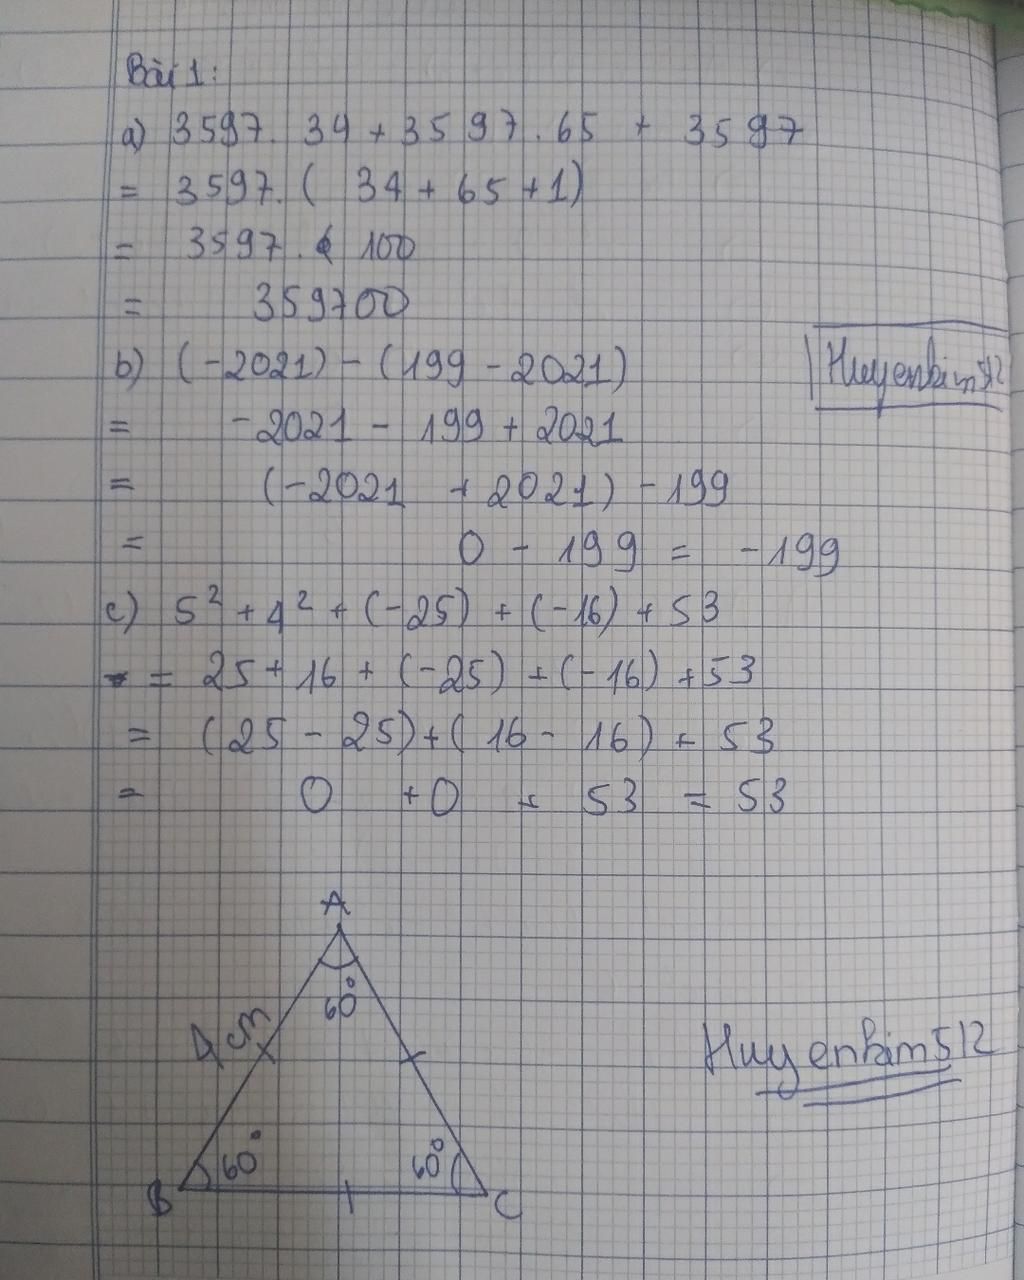 Bài 1:
a) 3597. 34 + 3597.65 + 3597
= 3597. ( 34 + 65 + 1)
= 3597. 100
= 359700
b) (-2021) - (199 - 2021)
Huyenkim512
= -2021 - 199 + 2021
= (-2021 + 2021) - 199
= 0 - 199 = -199
c) 5² + 4² + (-25) + (-16) + 53
= 25 + 16 + (-25) + (-16) + 53
= (25 - 25) + (16 - 16) + 53
= 0 + 0 + 53 = 53
A
60°
4 cm
Huyenkim512
60° 60°
B C